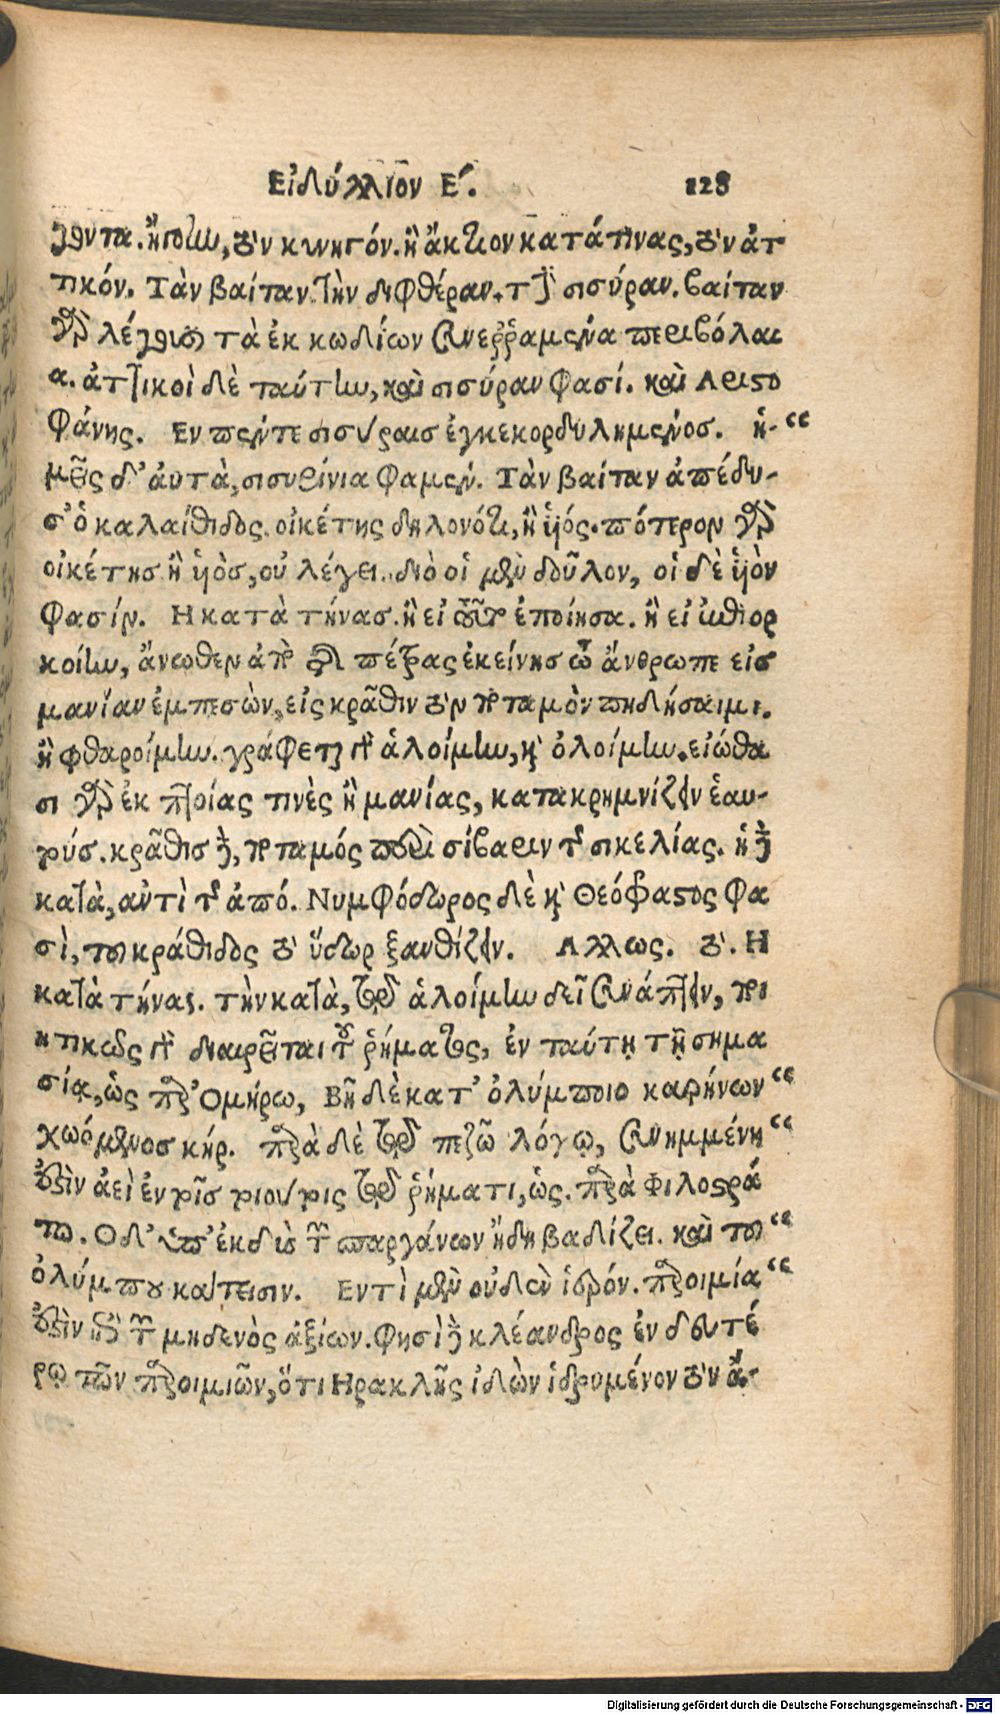 Εἰδύλλιον Ε΄. 128
γοντα. ἤτοι τὼ, τὸν κυνηγόν. ἢ ἄκτιον κατά τινας, τὸν ἀτ
τικόν. Τὰν βαίταν. τὴν διφθέραν. τ̀ σισύραν. βαίταν
γὰρ λέγουσι τὰ ἐκ κωδίων συνεῤῥαμένα περιβόλαι
α. ἀττικοὶ δὲ ταύτην, καὶ σισύραν φασί. καὶ Αριστο
φάνης. Εν πέντε σισύραισ ἐγκεκορδυλημένοσ. ἡ- “
μεῖς δ’ αὐτὰ, σισυρίνια φαμέν. Τὰν βαίταν ἀπέδυ-
σ’ ὁ καλαίθιδος. οἰκέτης δηλονότι, ἢ ὑιός. πότερον γὰρ
οἰκέτησ ἢ ὑιὸσ, οὐ λέγει. διὸ οἱ μὲν δοῦλον, οἱ δὲ ὑιὸν
φασίν. Η κατὰ τήνασ. ἢ εἰ τοῦτο ἐποίησα. ἢ εἰ ὠθιορ
κοίην, ἄνωθεν ἀπὸ τῆς πέτρας ἐκείνησ ὦ ἄνθρωπε εἰσ
μανίαν ἐμπεσὼν, εἰς κρᾶθιν τὸν ποταμὸν πηδήσαιμι.
ἢ φθαροίμην. γράφεται καὶ ἁλοίμην, καὶ ὀλοίμην. εἰώθα
σι γὰρ ἐκ πτοίας τινὲς ἢ μανίας, κατακρημνίζειν ἑαυ-
τούσ. κρᾶθισ δὲ, ποταμός περὶ σίβαριν τῆς σικελίας. ἡ δὲ
κατὰ, αὐτὶ τῆς ἀπό. Νυμφόδωρος δὲ καὶ Θεόφραστος φα
σὶ, τοῦ κράθιδος τὸ ὕδωρ ξανθίζειν. Αλλως. τὸ. Η
κατὰ τήνας. τὴν κατὰ, πρὸς τὸ ἁλοίμην δεῖ συνάπτειν, ποι
ητικῶς καὶ διαιρεῖται τοῦ ῥήματος, ἐν ταύτῃ τῇ σημα
σίᾳ, ὡς παρ’ Ομήρω, Βῆ δὲ κατ’ ὀλύμποιο καρήνων “
χωόμενοσ κῆρ. παρὰ δὲ τῷ πεζῶ λόγῳ, συνημμένη “
ἐστὶν ἀεὶ ἐν τοῖσ τοιούτοις τῷ ῥήματι, ὡς. παρὰ Φιλοστρά
τω. Οδ’ ὑπ’ ἐκδὺσ τῶν σπαργάνων ἤδη βαδίζει. καὶ τοῦ “
ὀλύμπου κάτεισιν. Εντὶ μὲν οὐδὲν ἱερόν. παροιμία “
ἐστὶν ἐπὶ τῶν μηδενὸς ἀξίων. φησὶ δὲ κλέανδρος ἐν δευτέ
ρῳ τῶν παροιμιῶν, ὅτι Ηρακλῆς ἰδὼν ἱδρυμένον τὸν ἄ-
Digitalisierung gefördert durch die Deutsche Forschungsgemeinschaft - DFG